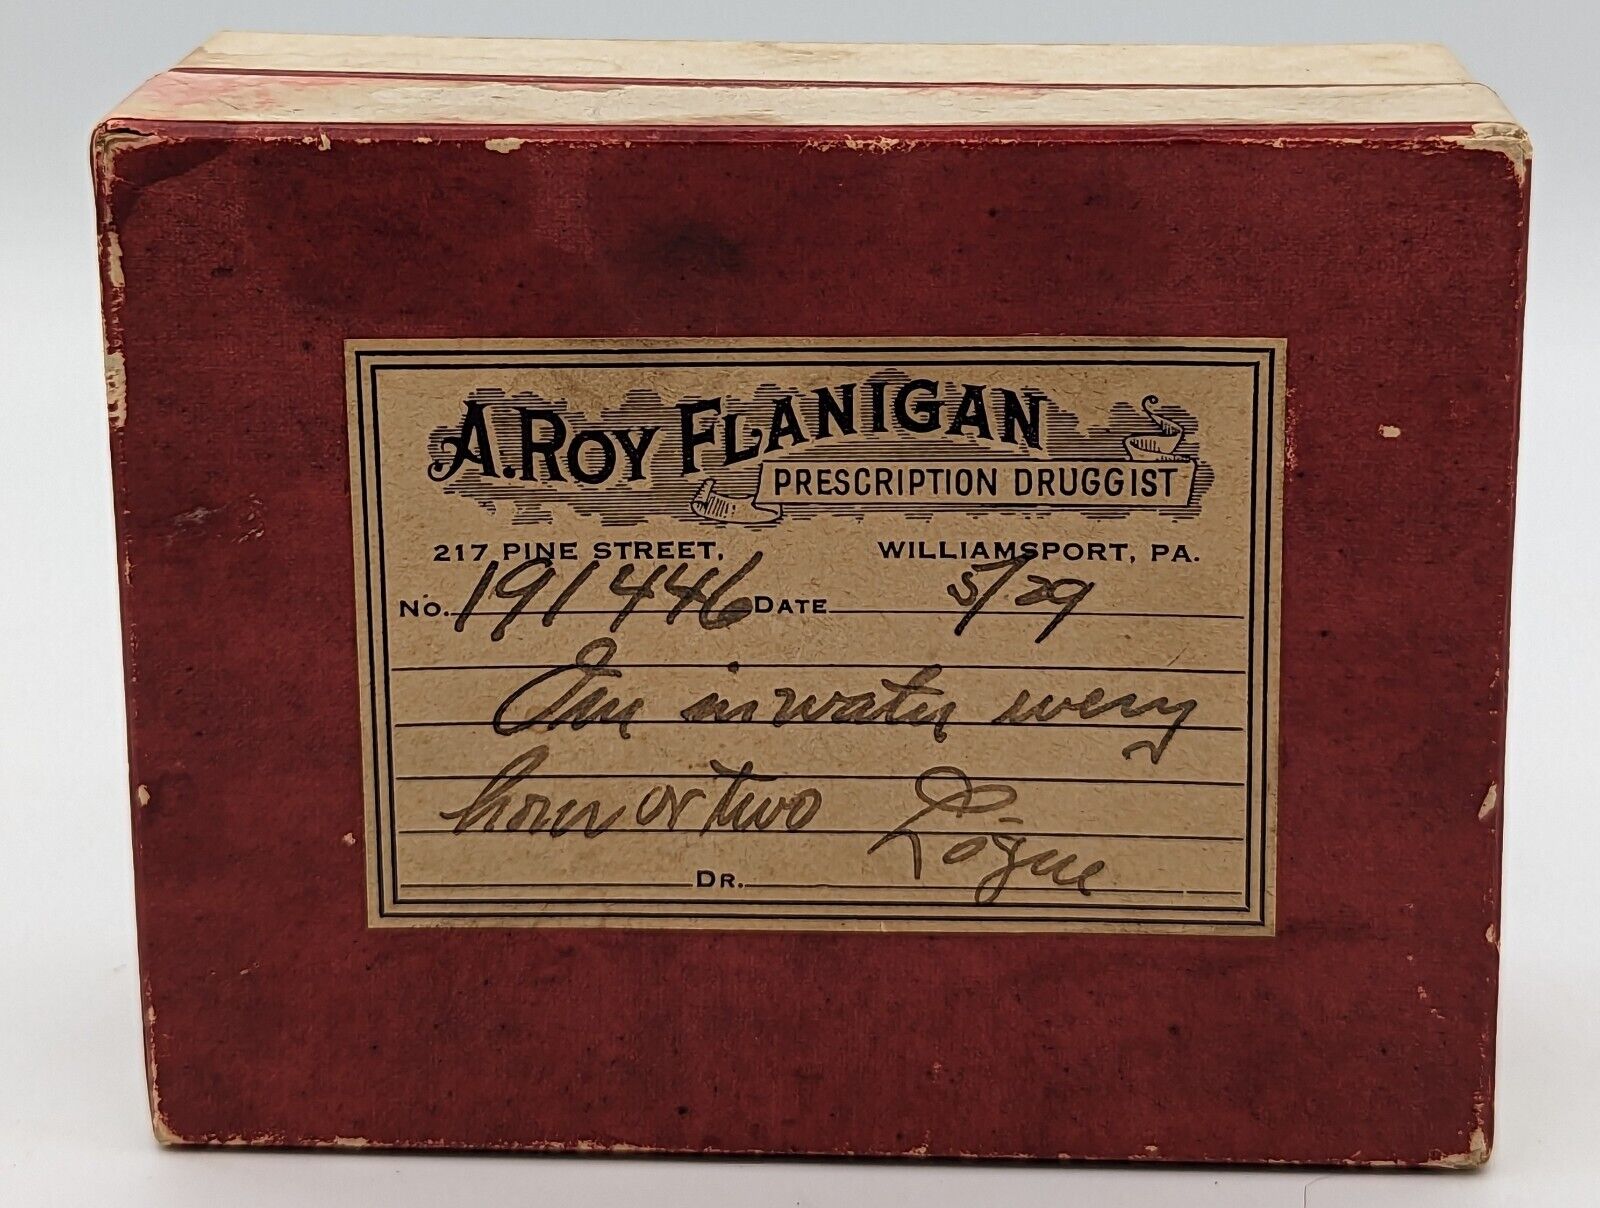 A. ROY FLANIGAN
PRESCRIPTION DRUGGIST
217 PINE STREET, WILLIAMSPORT, PA.
No. 191446 DATE 5/29
One in water every
hour or two
DR. Logue